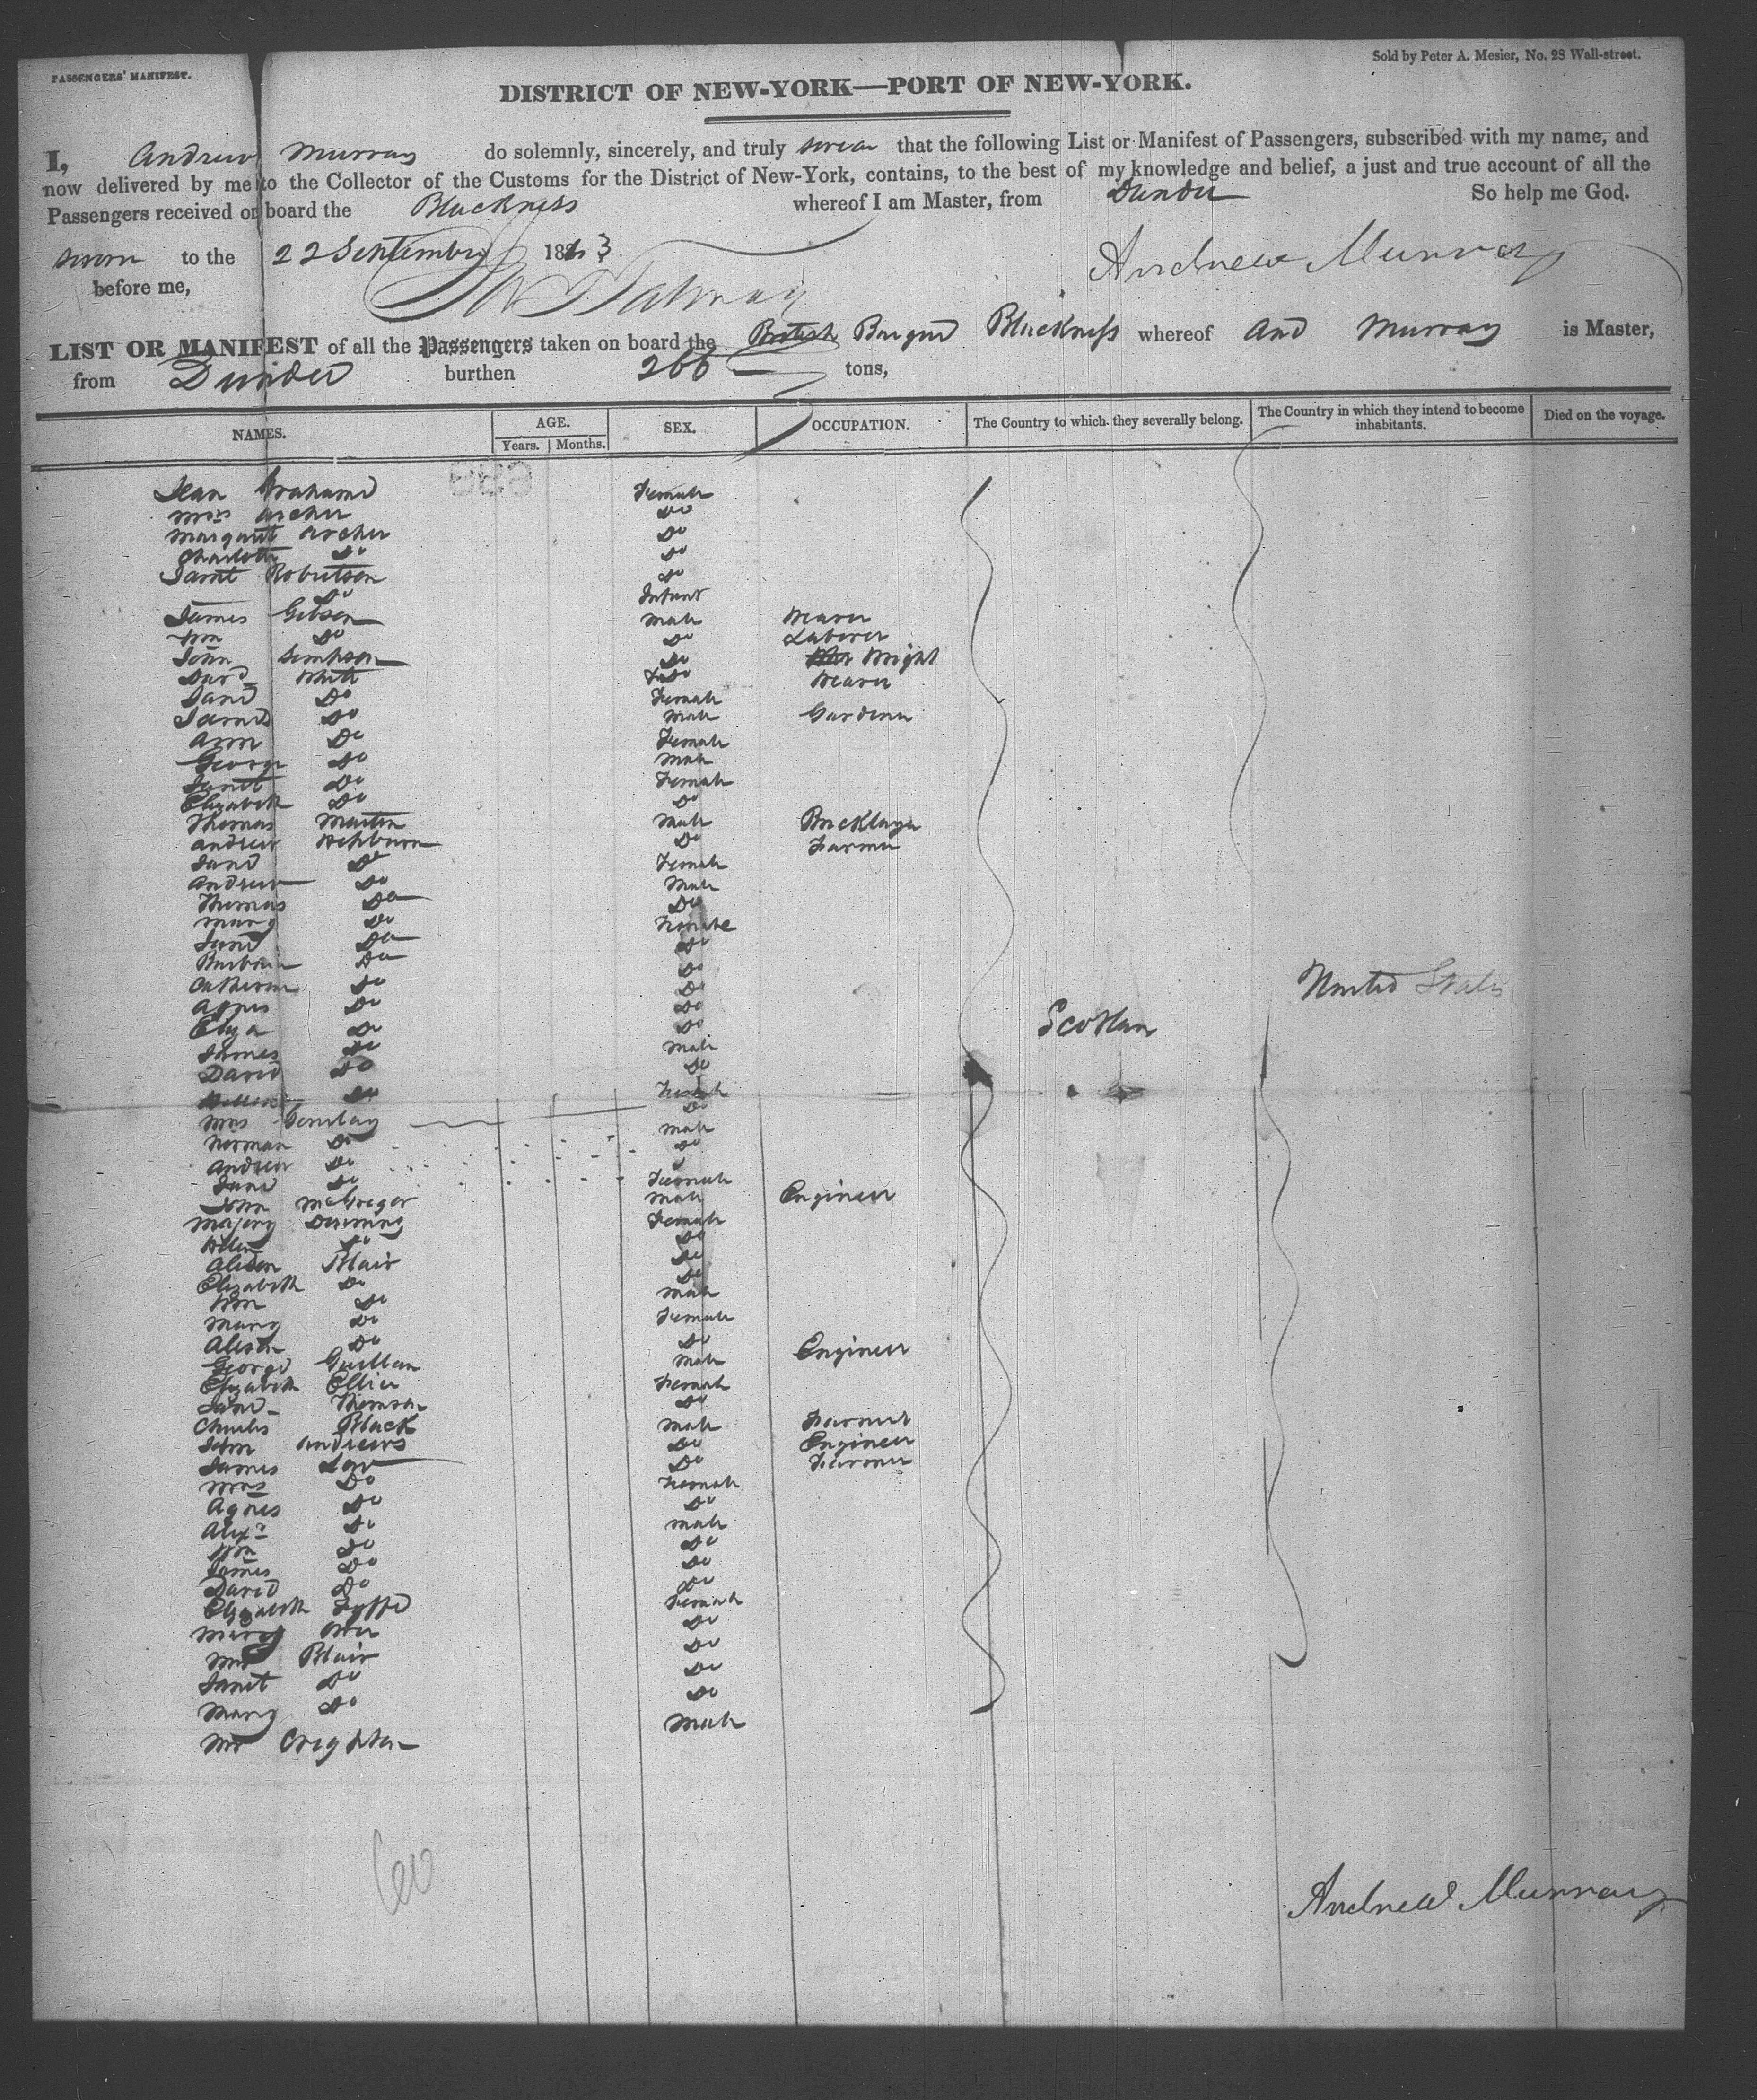 PASSENGERS' MANIFEST.
Sold by Peter A. Mesier, No. 28 Wall-street.
DISTRICT OF NEW-YORK—PORT OF NEW-YORK.
I, Andrew Murray do solemnly, sincerely, and truly swear that the following List or Manifest of Passengers, subscribed with my name, and
now delivered by me to the Collector of the Customs for the District of New-York, contains, to the best of my knowledge and belief, a just and true account of all the
Passengers received on board the Blackness whereof I am Master, from Dundee So help me God.
sworn to the 22 September 183 Andrew Murray
before me,
LIST OR MANIFEST of all the Passengers taken on board the British Barque Blackness whereof And Murray is Master,
from Dundee burthen 266 tons,
NAMES. AGE. SEX. OCCUPATION. The Country to which they severally belong. The Country in which they intend to become inhabitants. Died on the voyage.
Years. Months.
Jean Grahame Female
Mrs Archer Do
Margaret Archer Do
Charlotte Do Do
Janet Robertson Do
Do Infant
James Gibson Male Weaver
Wm Do Do Laborer
John Simpson Do Wright
David White Do Weaver
Jane Do Female
James Do Male Gardener
Ann Do Female
George Do Male
Janet Do Female
Elizabeth Do Do
Thomas Martin Male Bricklayer
Andrew Hepburn Do Farmer
Jane Do Female
Andrew Do Male
Thomas Do Do
Mary Do Female
Jane Do Do
Barbara Do Do
Catherine Do Do United States
Agnes Do Do
Eliza Do Do Scotlan
James Do Male
David Do Do
Do Female
Mrs Gourlay Do
Norman Do Male
Andrew Do Do
Jane Do Female
John McGregor Male Engineer
Majory Female
Helen Do Do
Alison Blair Do
Elizabeth Do Do
Wm Do Male
Mary Do Female
Alison Do Do
George Male Engineer
Elizabeth Female
Jane Thomson Do
Charles Black Male Farmer
John Andrews Do Engineer
James Low Do Farmer
Mrs Do Female
Agnes Do Do
Alexr Do Male
Wm Do Do
James Do Do
David Do Do
Elizabeth Fyffe Female
Mary Do
Mrs Blair Do
Janet Do Do
Mary Do Do
Mr Crighton Male
60
Andrew Murray